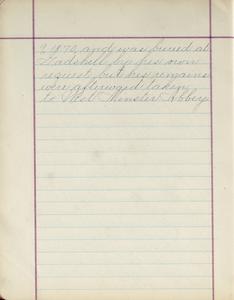 9 1870, and was buried at
Gadshill by his own
request, but his remains
were afterward taken
to West Minster Abbey